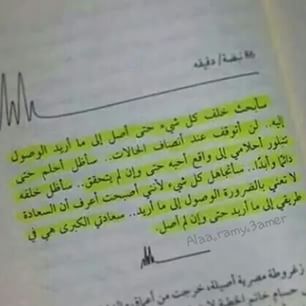 86 نبضة/دقيقه
سأبحث خلف كل شيء حتى أصل إلى ما أريد الوصول
إليه.. لن أتوقف عند أنصاف الحالات.. سأظل أحلم حتى
تتبلور أحلامي إلى واقع أحبه حتى وإن لم يتحقق.. سأظل خلفه
دائمًا وأبدًا.. سأتجاهل كل شيء لأنني أصبحت أعرف أن السعادة
لا تعني بالضرورة الوصول إلى ما أريد.. سعادتي الكبرى هي في
طريقي إلى ما أريد حتى وإن لم أصل.
Alaa.ramy.3amer
زغروطة مصرية أصيلة، خرجت من أعماق
حسام